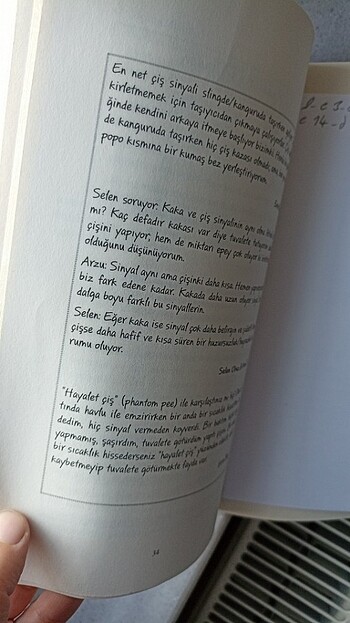 En net çiş sinyali slingde/kanguruda taşırken
kirletmemek için taşıyıcıdan çıkmaya çalışıyorlar.
ğinde kendini arkaya itmeye başlıyor bizimki.
de kanguruda taşırken hiç çiş kazası olmadı, ama
popo kısmına bir kumaş bez yerleştiriyorum.
Selen soruyor: Kaka ve çiş sinyalinin aynı
mı? Kaç defadır kakası var diye tuvalete
çişini yapıyor, hem de miktarı epey çok oluyor
olduğunu düşünüyorum.
Arzu: Sinyal aynı ama çişinki daha kısa. Hemen
biz fark edene kadar. Kakada daha uzun
dalga boyu farklı bu sinyallerin.
Selen: Eğer kaka ise sinyal çok daha belirgin
çişse daha hafif ve kısa süren bir huzursuzluk
rumu oluyor.
Selen
"Hayalet çiş" (phantom pee) ile karşılaştınız mı hiç?
tında havlu ile emzirirken bir anda bir sıcaklık
dedim, hiç sinyal vermeden koyverdi. Bir baktım
yapmamış, şaşırdım, tuvalete götürdüm yaptı çişini.
bir sıcaklık hissederseniz "hayalet çiş"
kaybetmeyip tuvalete götürmekte fayda var.
34